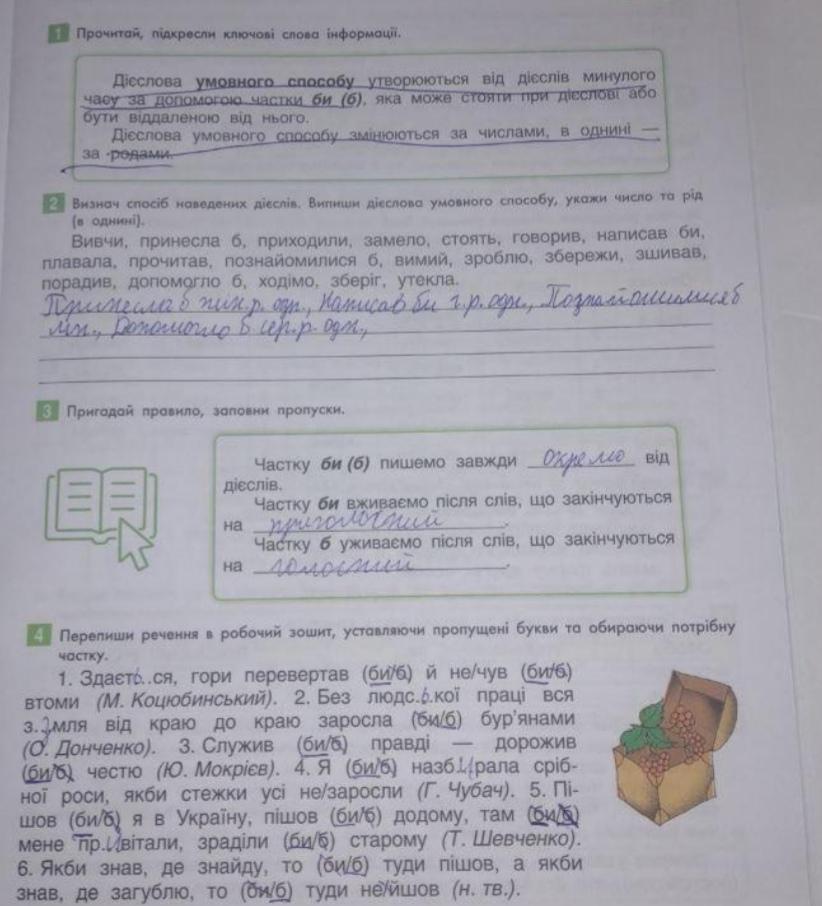 1 Прочитай, підкресли ключові слова інформації.
Дієслова умовного способу утворюються від дієслів минулого
часу за допомогою частки би (б), яка може стояти при дієслові або
бути віддаленою від нього.
Дієслова умовного способу змінюються за числами, в однині —
за родами.
2 Визнач спосіб наведених дієслів. Випиши дієслова умовного способу, укажи число та рід
(в однині).
Вивчи, принесла б, приходили, замело, стоять, говорив, написав би,
плавала, прочитав, познайомилися б, вимий, зроблю, збережи, зшивав,
порадив, допомогло б, ходімо, зберіг, утекла.
Принесла б жін.р. одн., Написав би ч.р. одн., Познайомилися б
мн., Допомогло б сер.р. одн.,
3 Пригадай правило, заповни пропуски.
Частку би (б) пишемо завжди окремо від
дієслів.
Частку би вживаємо після слів, що закінчуються
на приголосний.
Частку б уживаємо після слів, що закінчуються
на голосний.
4 Перепиши речення в робочий зошит, уставляючи пропущені букви та обираючи потрібну
частку.
1. Здаєть..ся, гори перевертав (би/б) й не/чув (би/б)
втоми (М. Коцюбинський). 2. Без людс.ь.кої праці вся
з..мля від краю до краю заросла (би/б) бур'янами
(О. Донченко). 3. Служив (би/б) правді — дорожив
(би/б) честю (Ю. Мокрієв). 4. Я (би/б) назб.и.рала сріб-
ної роси, якби стежки усі не/заросли (Г. Чубач). 5. Пі-
шов (би/б) я в Україну, пішов (би/б) додому, там (би/б)
мене пр.и.вітали, зраділи (би/б) старому (Т. Шевченко).
6. Якби знав, де знайду, то (би/б) туди пішов, а якби
знав, де загублю, то (би/б) туди не/йшов (н. тв.).